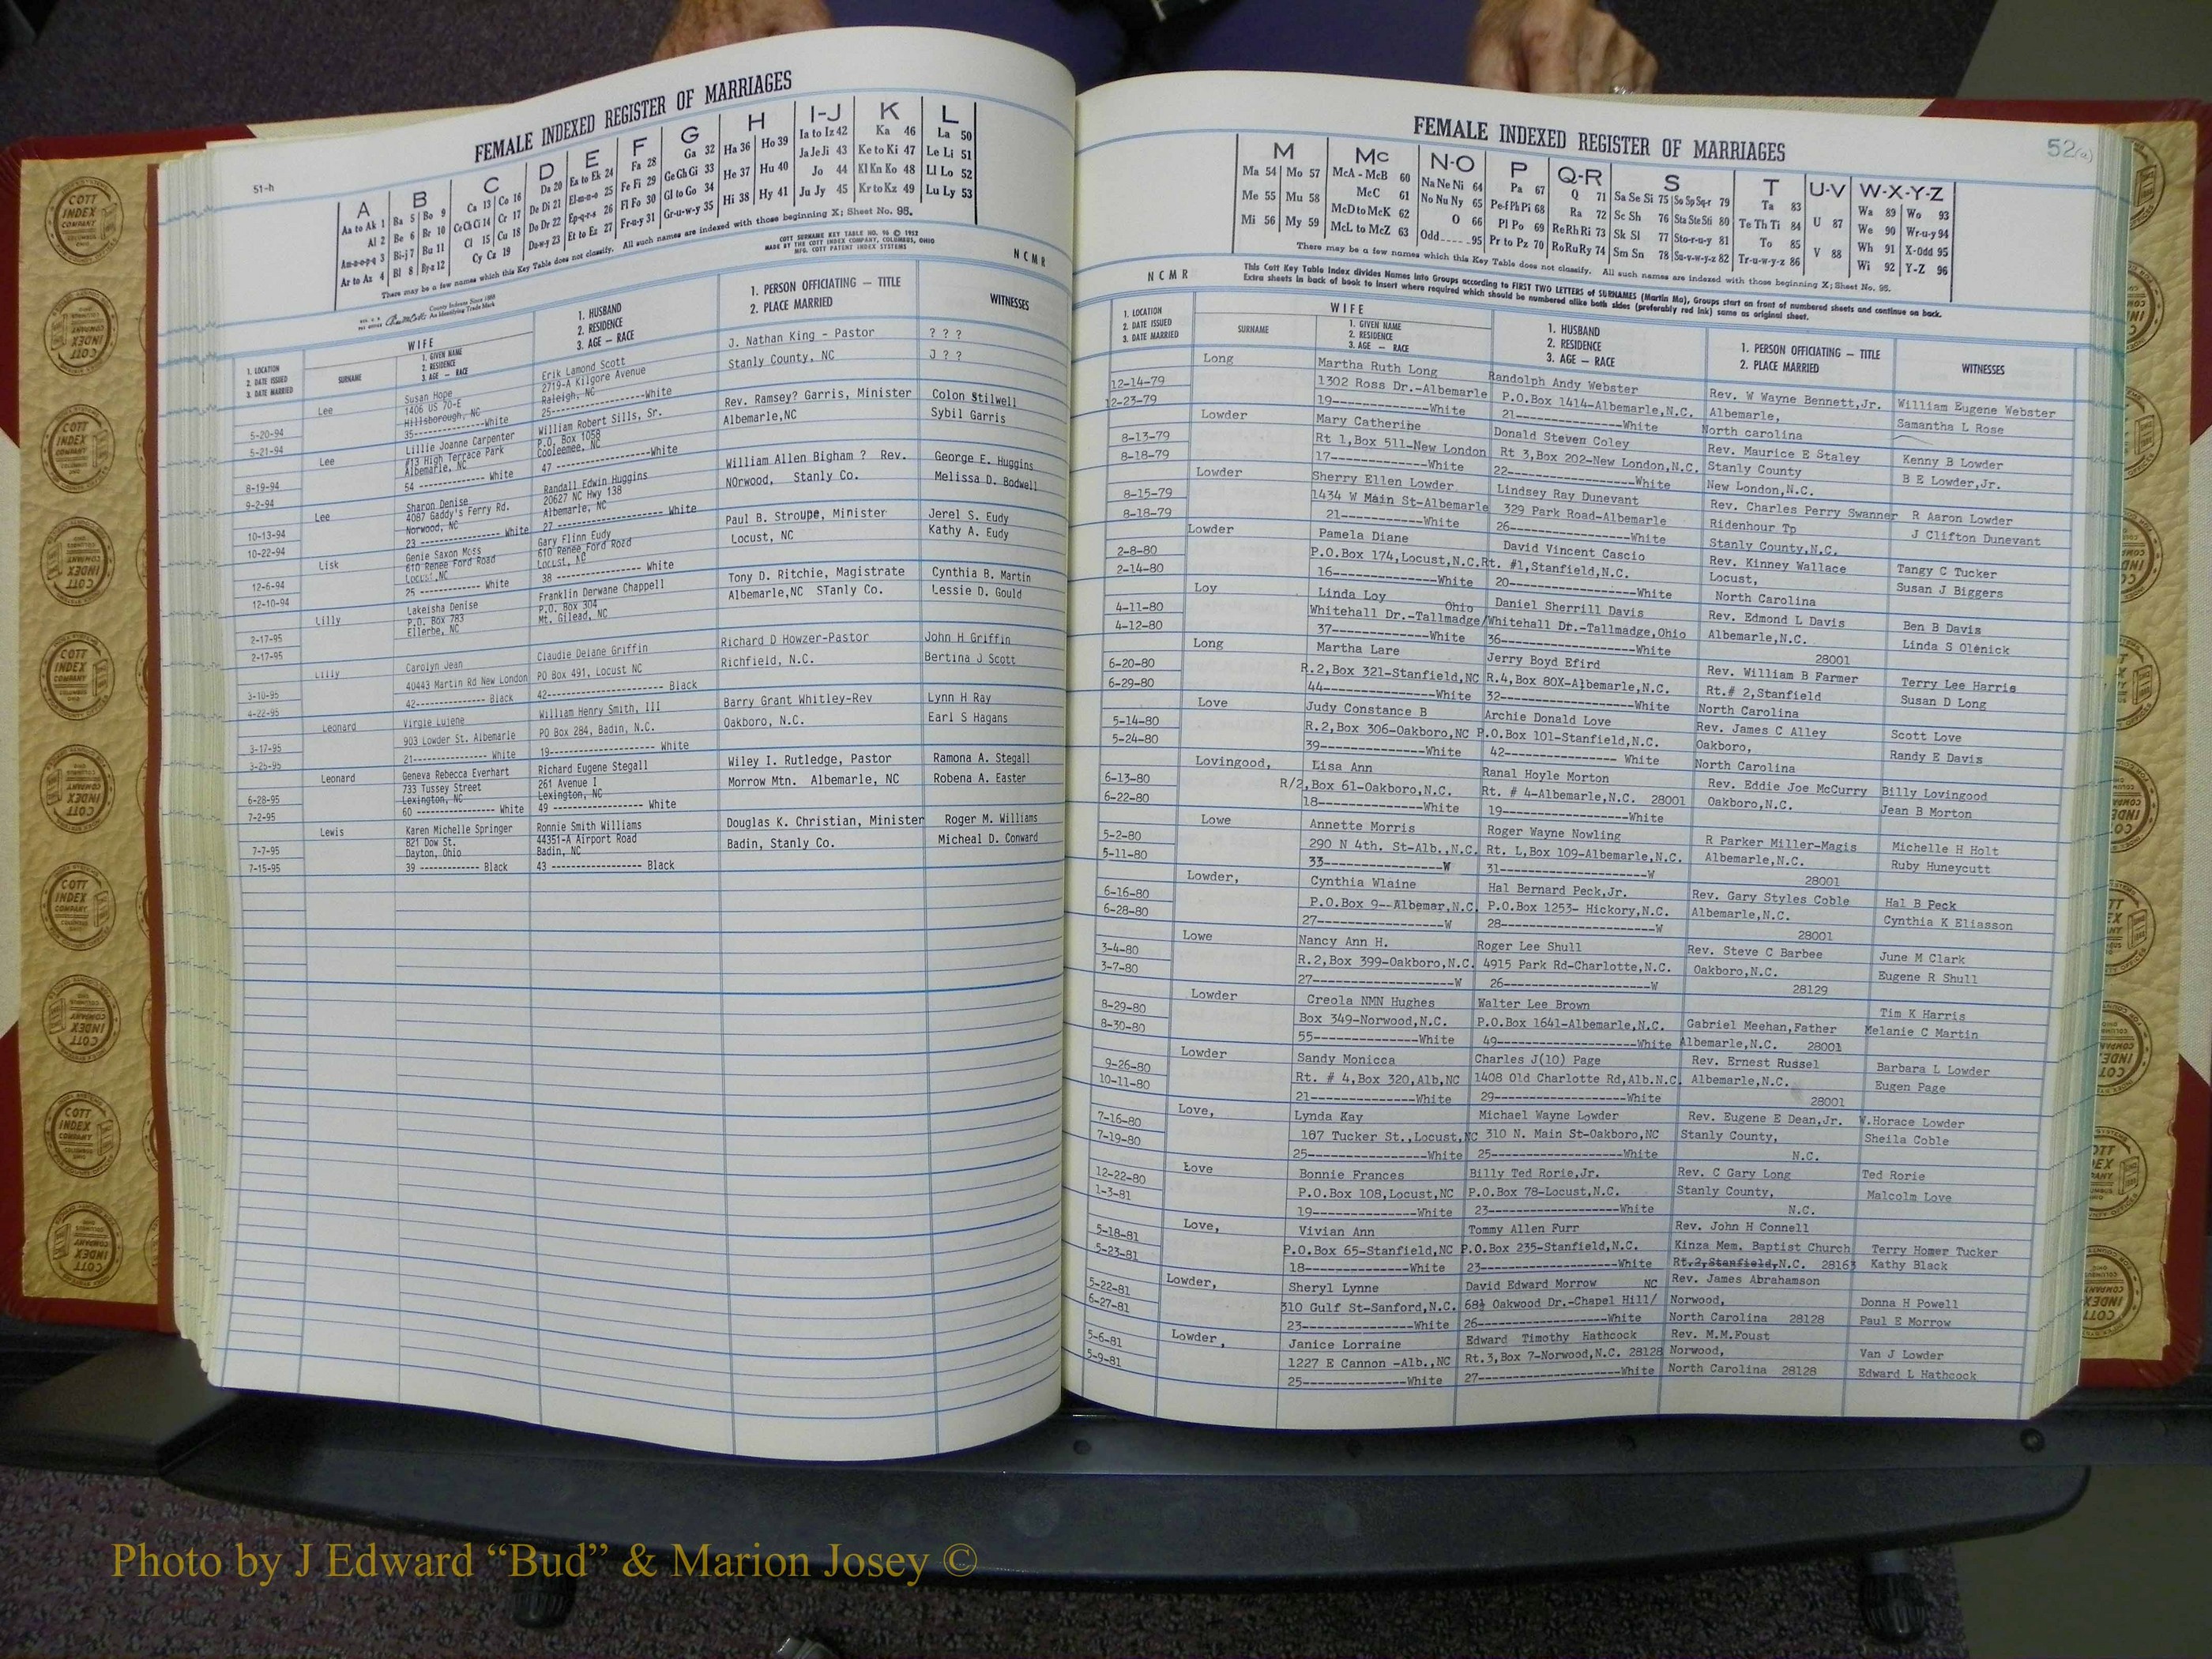 FEMALE INDEXED REGISTER OF MARRIAGES
51-h
A B C D E F G H I-J K L
Aa to Ak 1 Ba 5 Bo 9 Ca 13 Co 16 Da 20 Ea to Ek 24 Fa 28 Ga 32 Ha 36 Ho 39 Ia to Iz 42 Ka 46 La 50
Al 2 Be 6 Br 10 Ce Ch Ci 14 Cr 17 De Di 21 El-m-n-o 25 Fe Fi 29 Ge Gh Gi 33 He 37 Hu 40 Ja Je Ji 43 Ke to Ki 47 Le Li 51
Am-n-o-p-q 3 Bi-j 7 Bu 11 Cl 15 Cu 18 Do Dr 22 Ep-q-r-s 26 Fl Fo 30 Gl to Go 34 Hi 38 Hy 41 Jo 44 Kl Kn Ko 48 Ll Lo 52
Ar to Az 4 Bl 8 By-z 12 Cy Cz 19 Du-w-y 23 Et to Ez 27 Fr-u-y 31 Gr-u-w-y 35 Ju Jy 45 Kr to Kz 49 Lu Ly 53
There may be a few names which this Key Table does not classify. All such names are indexed with those beginning X; Sheet No. 95.
COTT SURNAME KEY TABLE NO. 96 © 1952
MADE BY THE COTT INDEX COMPANY, COLUMBUS, OHIO
MFG. COTT PATENT INDEX SYSTEMS
NCMR
County Indexes Since 1888
An Identifying Trade Mark
1. LOCATION
2. DATE ISSUED
3. DATE MARRIED
WIFE
SURNAME
1. GIVEN NAME
2. RESIDENCE
3. AGE — RACE
1. HUSBAND
2. RESIDENCE
3. AGE — RACE
1. PERSON OFFICIATING — TITLE
2. PLACE MARRIED
WITNESSES
Lee Susan Hope Erik Lamond Scott J. Nathan King - Pastor ? ? ?
1406 US 70-E 2719-A Kilgore Avenue Stanly County, NC J ? ?
5-20-94 Hillsborough, NC Raleigh, NC
5-21-94 35--------------White 25--------------White
Lee Lillie Joanne Carpenter William Robert Sills, Sr. Rev. Ramsey? Garris, Minister Colon Stilwell
#13 High Terrace Park P.O. Box 1058 Albemarle,NC Sybil Garris
8-19-94 Albemarle, NC Cooleemee, NC
9-2-94 54 -------------- White 47 --------------White
Lee Sharon Denise Randall Edwin Huggins William Allen Bigham ? Rev. George E. Huggins
4087 Gaddy's Ferry Rd. 20627 NC Hwy 138 NOrwood, Stanly Co. Melissa D. Bodwell
10-13-94 Norwood, NC Albemarle, NC
10-22-94 23 -------------- White 27 -------------- White
Lisk Genie Saxon Moss Gary Flinn Eudy Paul B. Stroupe, Minister Jerel S. Eudy
610 Renee Ford Road 610 Renee Ford Road Locust, NC Kathy A. Eudy
12-6-94 Locust,NC Locust, NC
12-10-94 25 -------------- White 38 -------------- White
Lilly Lakeisha Denise Franklin Derwane Chappell Tony D. Ritchie, Magistrate Cynthia B. Martin
P.O. Box 783 P.O. Box 304 Albemarle,NC STanly Co. Lessie D. Gould
2-17-95 Ellerbe, NC Mt. Gilead, NC
2-17-95
Lilly Carolyn Jean Claudie Delane Griffin Richard D Howzer-Pastor John H Griffin
40443 Martin Rd New London PO Box 491, Locust NC Richfield, N.C. Bertina J Scott
3-10-95 42-------------- Black 42-------------- Black
4-22-95
Leonard Virgie Lujene William Henry Smith, III Barry Grant Whitley-Rev Lynn H Ray
903 Lowder St. Albemarle PO Box 284, Badin, N.C. Oakboro, N.C. Earl S Hagans
3-17-95 21-------------- White 19-------------- White
3-25-95
Leonard Geneva Rebecca Everhart Richard Eugene Stegall Wiley I. Rutledge, Pastor Ramona A. Stegall
733 Tussey Street 261 Avenue I Morrow Mtn. Albemarle, NC Robena A. Easter
6-28-95 Lexington, NC Lexington, NC
7-2-95 60 -------------- White 49 -------------- White
Lewis Karen Michelle Springer Ronnie Smith Williams Douglas K. Christian, Minister Roger M. Williams
821 Dow St. 44351-A Airport Road Badin, Stanly Co. Micheal D. Conward
7-7-95 Dayton, Ohio Badin, NC
7-15-95 39 -------------- Black 43 -------------- Black
FEMALE INDEXED REGISTER OF MARRIAGES
52(a)
M Mc N-O P Q-R S T U-V W-X-Y-Z
Ma 54 Mo 57 McA - McB 60 Na Ne Ni 64 Pa 67 Q 71 Sa Se Si 75 So Sp Sq-r 79 Ta 83 U 87 Wa 89 Wo 93
Me 55 Mu 58 McC 61 No Nu Ny 65 Pe-f Ph Pi 68 Ra 72 Sc Sh 76 Sta Ste Sti 80 Te Th Ti 84 V 88 We 90 Wr-u-y 94
Mi 56 My 59 McD to McK 62 O 66 Pl Po 69 Re Rh Ri 73 Sk Sl 77 Sto-r-u-y 81 To 85 Wh 91 X-Odd 95
McL to McZ 63 Odd 95 Pr to Pz 70 Ro Ru Ry 74 Sm Sn 78 Su-v-w-y-z 82 Tr-u-w-y-z 86 Wi 92 Y-Z 96
There may be a few names which this Key Table does not classify. All such names are indexed with those beginning X; Sheet No. 95.
NCMR
This Cott Key Table Index divides Names into Groups according to FIRST TWO LETTERS of SURNAMES (Martin Ma), Groups start on front of numbered sheets and continue on back.
Extra sheets in back of book to insert where required which should be numbered alike both sides (preferably red ink) same as original sheet.
1. LOCATION
2. DATE ISSUED
3. DATE MARRIED
WIFE
SURNAME
1. GIVEN NAME
2. RESIDENCE
3. AGE — RACE
1. HUSBAND
2. RESIDENCE
3. AGE — RACE
1. PERSON OFFICIATING — TITLE
2. PLACE MARRIED
WITNESSES
Long Martha Ruth Long Randolph Andy Webster Rev. W Wayne Bennett,Jr. William Eugene Webster
12-14-79 1302 Ross Dr.-Albemarle P.O.Box 1414-Albemarle,N.C. Albemarle, Samantha L Rose
12-23-79 19--------------White 21--------------White North carolina
Lowder Mary Catherine Donald Steven Coley Rev. Maurice E Staley Kenny B Lowder
8-13-79 Rt 1,Box 511-New London Rt 3,Box 202-New London,N.C. Stanly County B E Lowder,Jr.
8-18-79 17--------------White 22--------------White New London,N.C.
Lowder Sherry Ellen Lowder Lindsey Ray Dunevant Rev. Charles Perry Swanner R Aaron Lowder
8-15-79 1434 W Main St-Albemarle 329 Park Road-Albemarle Ridenhour Tp J Clifton Dunevant
8-18-79 21--------------White 26--------------White Stanly County,N.C.
Lowder Pamela Diane David Vincent Cascio Rev. Kinney Wallace Tangy C Tucker
2-8-80 P.O.Box 174,Locust,N.C. Rt. #1,Stanfield,N.C. Locust, Susan J Biggers
2-14-80 16--------------White 20--------------White North Carolina
Loy Linda Loy Ohio Daniel Sherrill Davis Rev. Edmond L Davis Ben B Davis
4-11-80 Whitehall Dr.-Tallmadge/ Whitehall Dr.-Tallmadge,Ohio Albemarle,N.C. Linda S Olenick
4-12-80 37--------------White 36--------------White 28001
Long Martha Lare Jerry Boyd Efird Rev. William B Farmer Terry Lee Harris
6-20-80 R.2,Box 321-Stanfield,NC R.4,Box 80X-Albemarle,N.C. Rt.# 2,Stanfield Susan D Long
6-29-80 44--------------White 32--------------White North Carolina
Love Judy Constance B Archie Donald Love Rev. James C Alley Scott Love
5-14-80 R.2,Box 306-Oakboro,NC P.O.Box 101-Stanfield,N.C. Oakboro, Randy E Davis
5-24-80 39--------------White 42-------------- White North Carolina
Lovingood, Lisa Ann Ranal Hoyle Morton Rev. Eddie Joe McCurry Billy Lovingood
6-13-80 R/2,Box 61-Oakboro,N.C. Rt. # 4-Albemarle,N.C. 28001 Oakboro,N.C. Jean B Morton
6-22-80 18--------------White 19--------------White
Lowe Annette Morris Roger Wayne Nowling R Parker Miller-Magis Michelle H Holt
5-2-80 290 N 4th. St-Alb.,N.C. Rt. L,Box 109-Albemarle,N.C. Albemarle,N.C. Ruby Huneycutt
5-11-80 33--------------W 31--------------W 28001
Lowder, Cynthia Wlaine Hal Bernard Peck,Jr. Rev. Gary Styles Coble Hal B Peck
6-16-80 P.O.Box 9--Albemar,N.C. P.O.Box 1253- Hickory,N.C. Albemarle,N.C. Cynthia K Eliasson
6-28-80 27--------------W 28--------------W 28001
Lowe Nancy Ann H. Roger Lee Shull Rev. Steve C Barbee June M Clark
3-4-80 R.2,Box 399-Oakboro,N.C. 4915 Park Rd-Charlotte,N.C. Oakboro,N.C. Eugene R Shull
3-7-80 27--------------W 26--------------W 28129
Lowder Creola NMN Hughes Walter Lee Brown Tim K Harris
8-29-80 Box 349-Norwood,N.C. P.O.Box 1641-Albemarle,N.C. Gabriel Meehan,Father Melanie C Martin
8-30-80 55--------------White 49--------------White Albemarle,N.C. 28001
Lowder Sandy Monicca Charles J(10) Page Rev. Ernest Russel Barbara L Lowder
9-26-80 Rt. # 4,Box 320,Alb,NC 1408 Old Charlotte Rd,Alb.N.C. Albemarle,N.C. Eugen Page
10-11-80 21--------------White 29--------------White 28001
Love, Lynda Kay Michael Wayne Lowder Rev. Eugene E Dean,Jr. W.Horace Lowder
7-16-80 107 Tucker St.,Locust,NC 310 N. Main St-Oakboro,NC Stanly County, Sheila Coble
7-19-80 25--------------White 25--------------White N.C.
Love Bonnie Frances Billy Ted Rorie,Jr. Rev. C Gary Long Ted Rorie
12-22-80 P.O.Box 108,Locust,NC P.O.Box 78-Locust,N.C. Stanly County, Malcolm Love
1-3-81 19--------------White 23--------------White N.C.
Love, Vivian Ann Tommy Allen Furr Rev. John H Connell
5-18-81 P.O.Box 65-Stanfield,NC P.O.Box 235-Stanfield,N.C. Kinza Mem. Baptist Church Terry Homer Tucker
5-23-81 18--------------White 23--------------White Rt.2,Stanfield,N.C. 28163 Kathy Black
Lowder, Sheryl Lynne David Edward Morrow NC Rev. James Abrahamson
5-22-81 310 Gulf St-Sanford,N.C. 68½ Oakwood Dr.-Chapel Hill/ Norwood, Donna H Powell
6-27-81 23--------------White 26--------------White North Carolina 28128 Paul E Morrow
Lowder, Janice Lorraine Edward Timothy Hathcock Rev. M.M.Foust
5-6-81 1227 E Cannon -Alb.,NC Rt.3,Box 7-Norwood,N.C. 28128 Norwood, Van J Lowder
5-9-81 25--------------White 27--------------White North Carolina 28128 Edward L Hathcock
Photo by J Edward “Bud” & Marion Josey ©